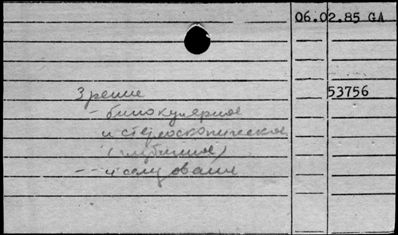 06.02.85 GA
Зрение 53756
- бинокулярное
и стереоскопическое
(глубинное)
-- исследование